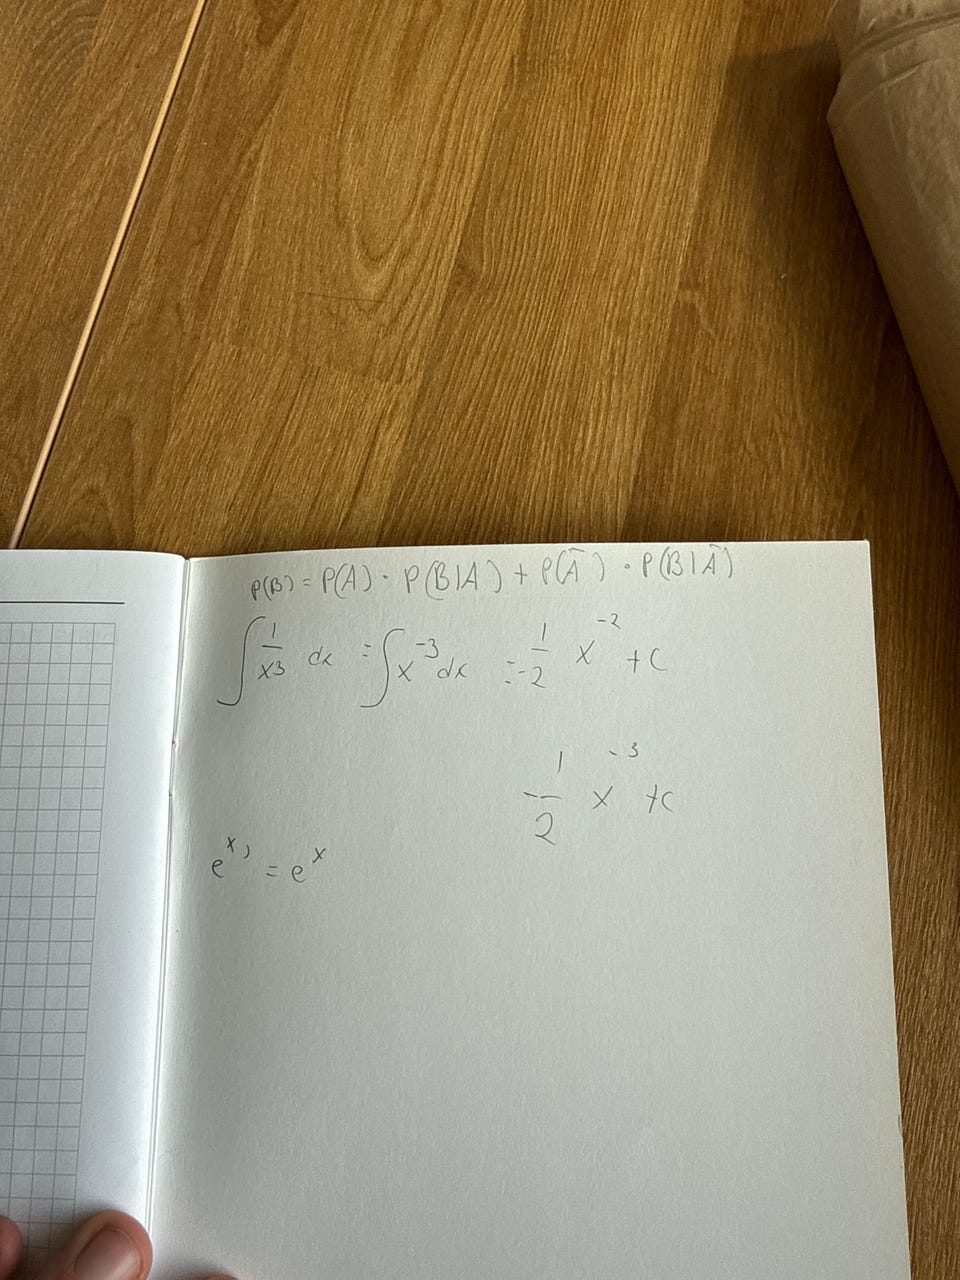 P(B) = P(A) · P(B|A) + P(Ā) · P(B|Ā)
∫ 1/x³ dx = ∫ x⁻³ dx = 1/-2 x⁻² + C
-1/2 x⁻³ + C
eˣ' = eˣ